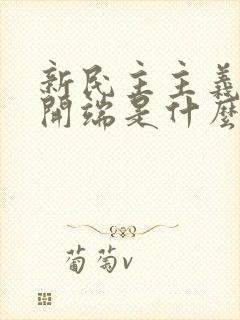 新民主主義
開端是什麼
葡萄v